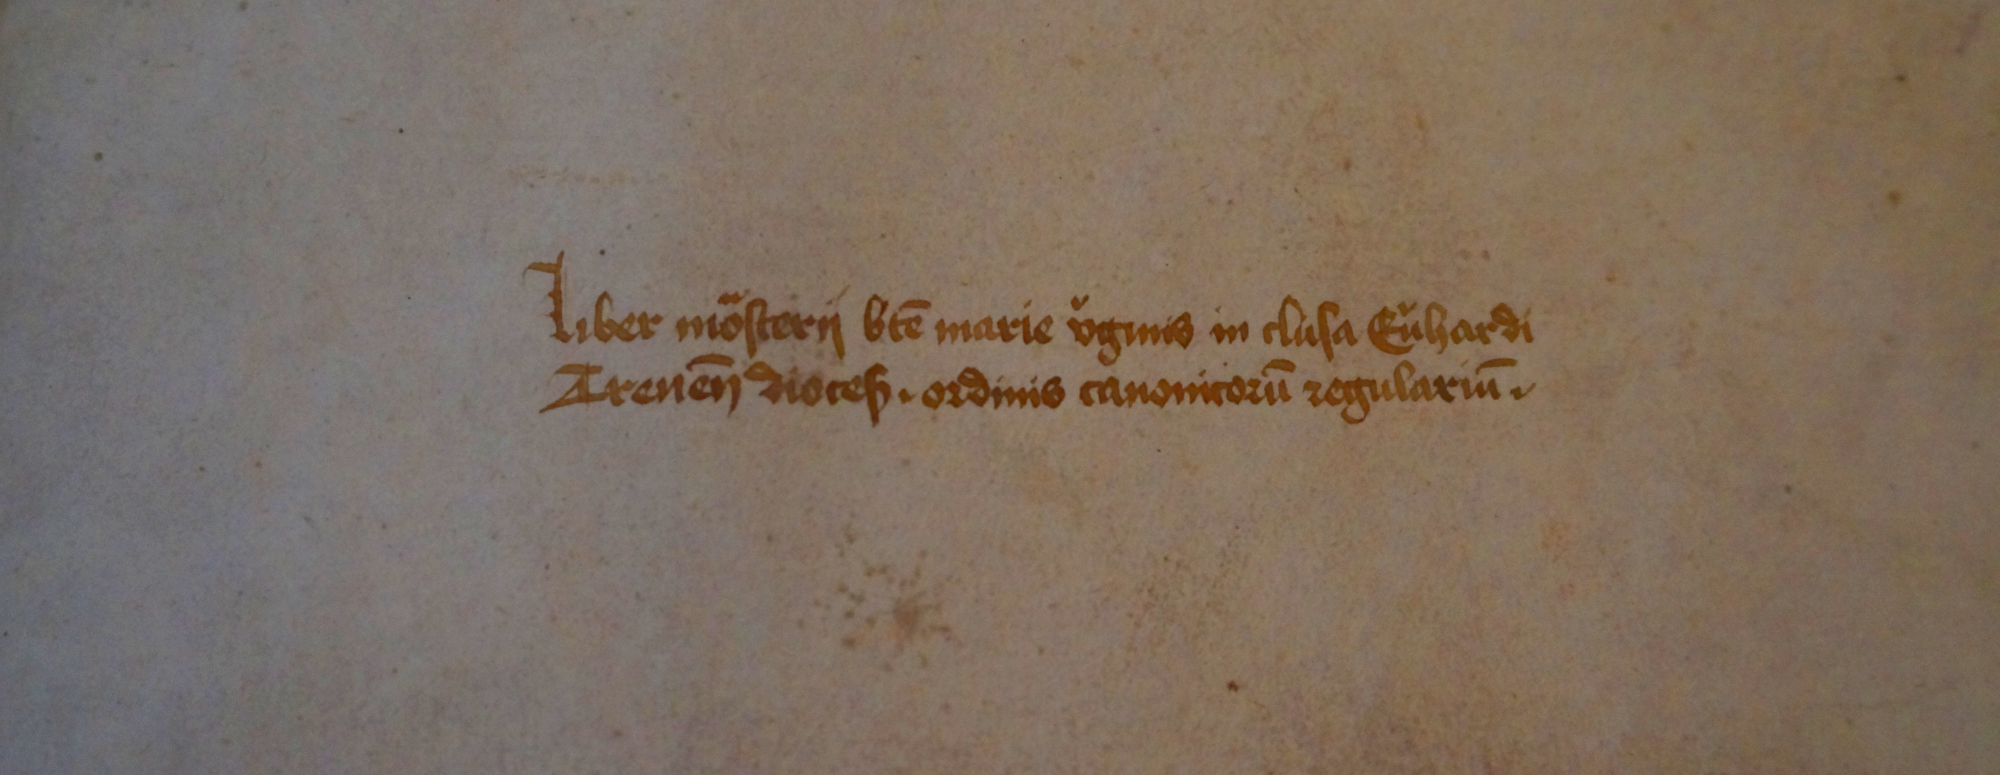 Liber mo̅sterij bte̅ marie v̉ginis in clusa Eu̓hardi
Treuen̅ dioces̉ . ordinis canonicoru̅ regulariu̅ .